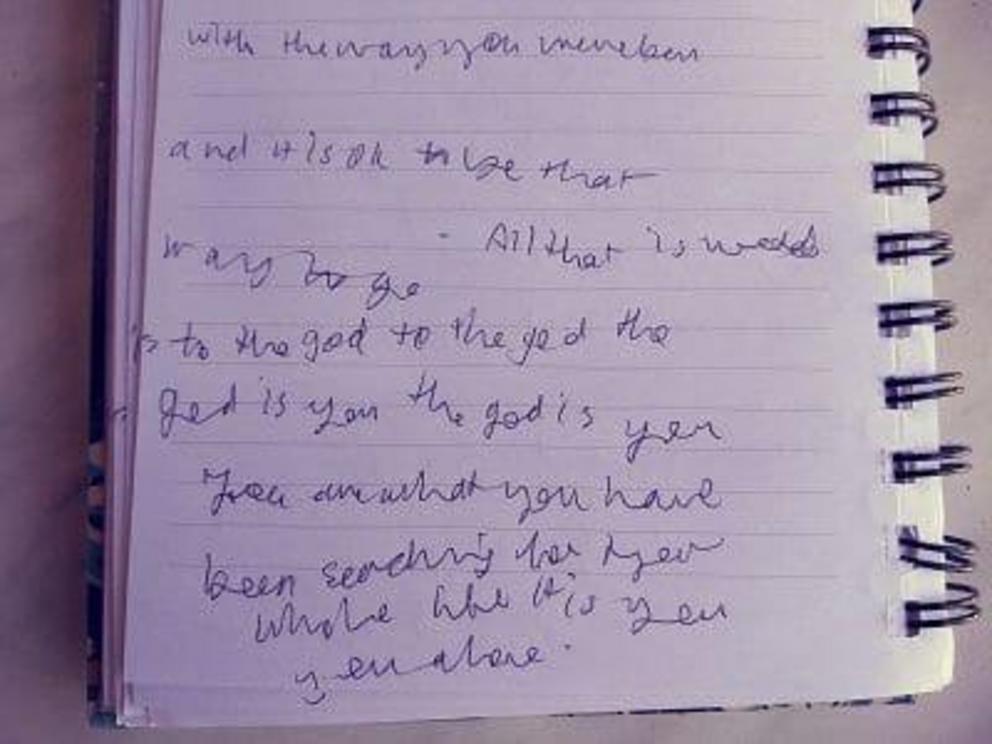 with the way you
and it is ok to be that
way to go - All that is
to the god to the god the
god is you the god is you
You are what you have
been searching for your
whole life it is you
you alone.